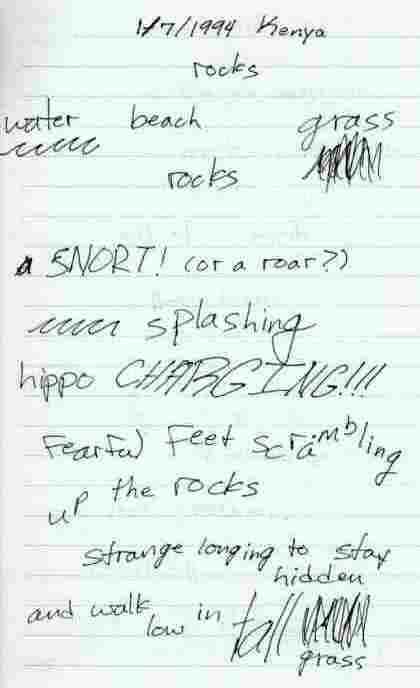 1/7/1994 Kenya
rocks
water beach grass
rocks
a SNORT! (or a roar?)
splashing
hippo CHARGING!!!
Fearful Feet scrambling
up the rocks
strange longing to stay
hidden
and walk low in tall
grass